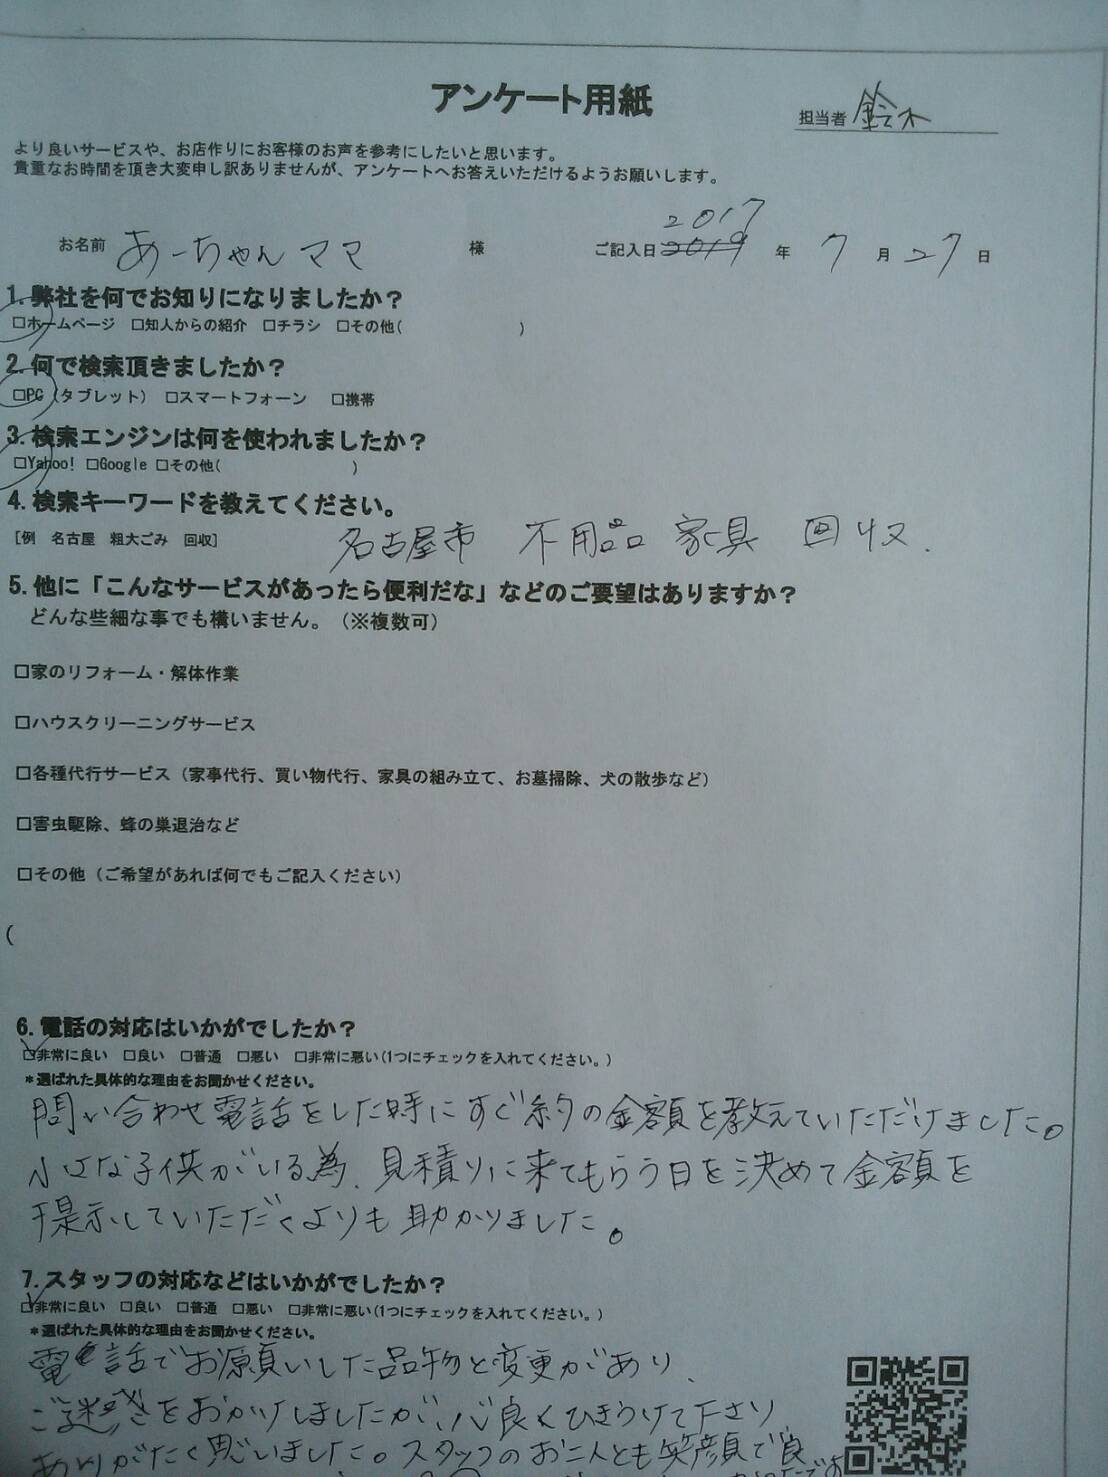 アンケート用紙
担当者 鈴木
より良いサービスや、お店作りにお客様のお声を参考にしたいと思います。
貴重なお時間を頂き大変申し訳ありませんが、アンケートへお答えいただけるようお願いします。
2017
お名前 あーちゃんママ 様 ご記入日 2019 年 7 月 27 日
1.弊社を何でお知りになりましたか？
□ホームページ □知人からの紹介 □チラシ □その他( )
2.何で検索頂きましたか？
□PC（タブレット） □スマートフォーン □携帯
3.検索エンジンは何を使われましたか？
□Yahoo! □Google □その他( )
4.検索キーワードを教えてください。
[例 名古屋 粗大ごみ 回収] 名古屋市 不用品 家具 回収.
5.他に「こんなサービスがあったら便利だな」などのご要望はありますか？
どんな些細な事でも構いません。（※複数可）
□家のリフォーム・解体作業
□ハウスクリーニングサービス
□各種代行サービス（家事代行、買い物代行、家具の組み立て、お墓掃除、犬の散歩など）
□害虫駆除、蜂の巣退治など
□その他（ご希望があれば何でもご記入ください）
(
6.電話の対応はいかがでしたか？
☑非常に良い □良い □普通 □悪い □非常に悪い(1つにチェックを入れてください。)
*選ばれた具体的な理由をお聞かせください。
問い合わせ電話をした時にすぐ約の金額を教えていただけました。
小さな子供がいる為、見積りに来てもらう日を決めて金額を
提示していただくよりも助かりました。
7.スタッフの対応などはいかがでしたか？
☑非常に良い □良い □普通 □悪い □非常に悪い(1つにチェックを入れてください。)
*選ばれた具体的な理由をお聞かせください。
電話でお願いした品物と変更があり、
ご迷惑をおかけしましたが、心良くひきうけて下さり
ありがたく思いました。スタッフのお二人とも笑顔で良